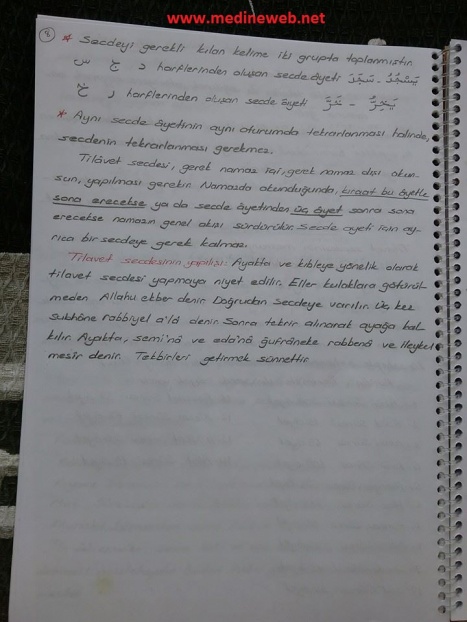 www.medineweb.net
8 * Secdeyi gerekli kılan kelime iki grupta toplanmıştır.
س ج د harflerinden oluşan secde âyeti يَسْجُدُ - سَجَدَ
خ ر harflerinden oluşan secde âyeti خَرَّ - يَخِرُّ
* Aynı secde âyetinin aynı oturumda tekrarlanması halinde,
secdenin tekrarlanması gerekmez.
Tilâvet secdesi, gerek namaz içi, gerek namaz dışı okun-
sun, yapılması gerekir. Namazda okunduğunda, kıraat bu âyetle
sona erecekse ya da secde âyetinden üç âyet sonra sona
erecekse namazın genel akışı sürdürülür. Secde ayeti için ay-
rıca bir secdeye gerek kalmaz.
Tilavet secdesinin yapılışı: Ayakta ve kıbleye yönelik olarak
tilavet secdesi yapmaya niyet edilir. Eller kulaklara götürül-
meden Allahu ekber denir. Doğrudan secdeye varılır. Üç kez
subhâne rabbiyel a'lâ denir. Sonra tekbir alınarak ayağa kal-
kılır. Ayakta, semi'nâ ve eda'nâ ğufrâneke rabbenâ ve ileykel
mesîr denir. Tekbirleri getirmek sünnettir.